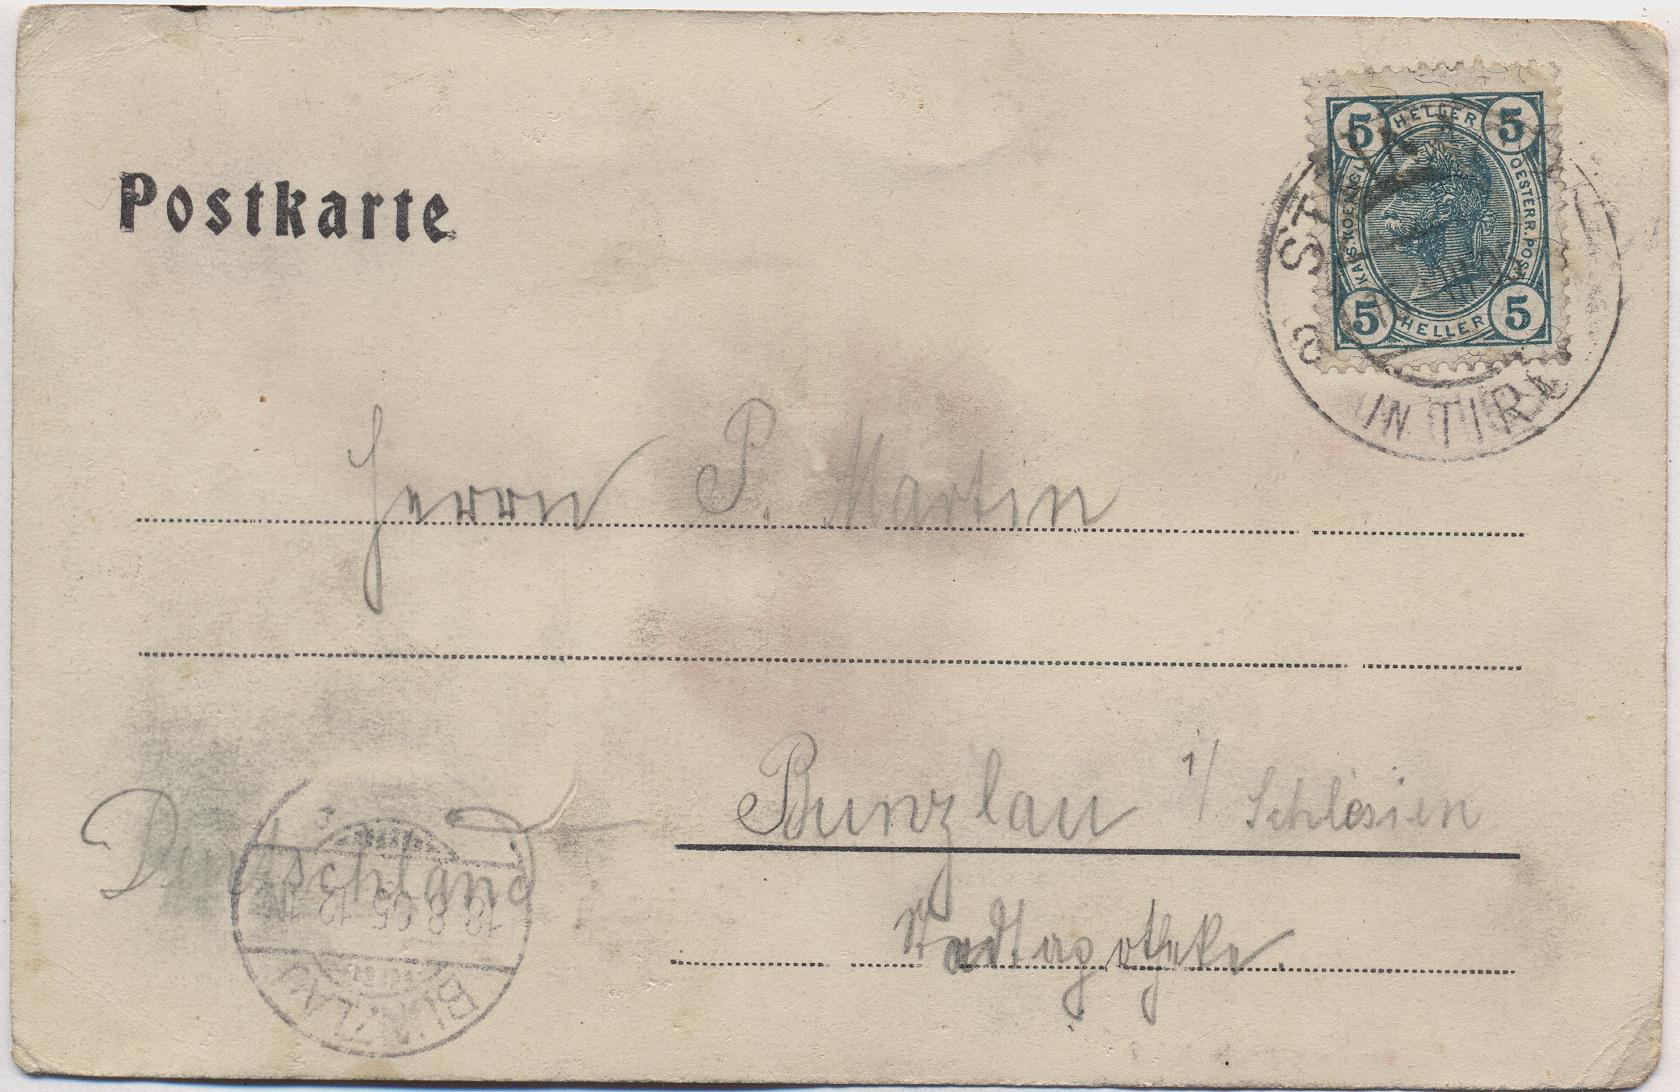 Postkarte
5 HELLER 5
KAIS. KOENIGL. OESTERR. POST
5 HELLER 5
ST.
IN TIROL
Herrn P. Martin
Bunzlau i/ Schlesien
Deutschland
Stadtapotheke.
18.8.05 12-1N
BUNZLAU